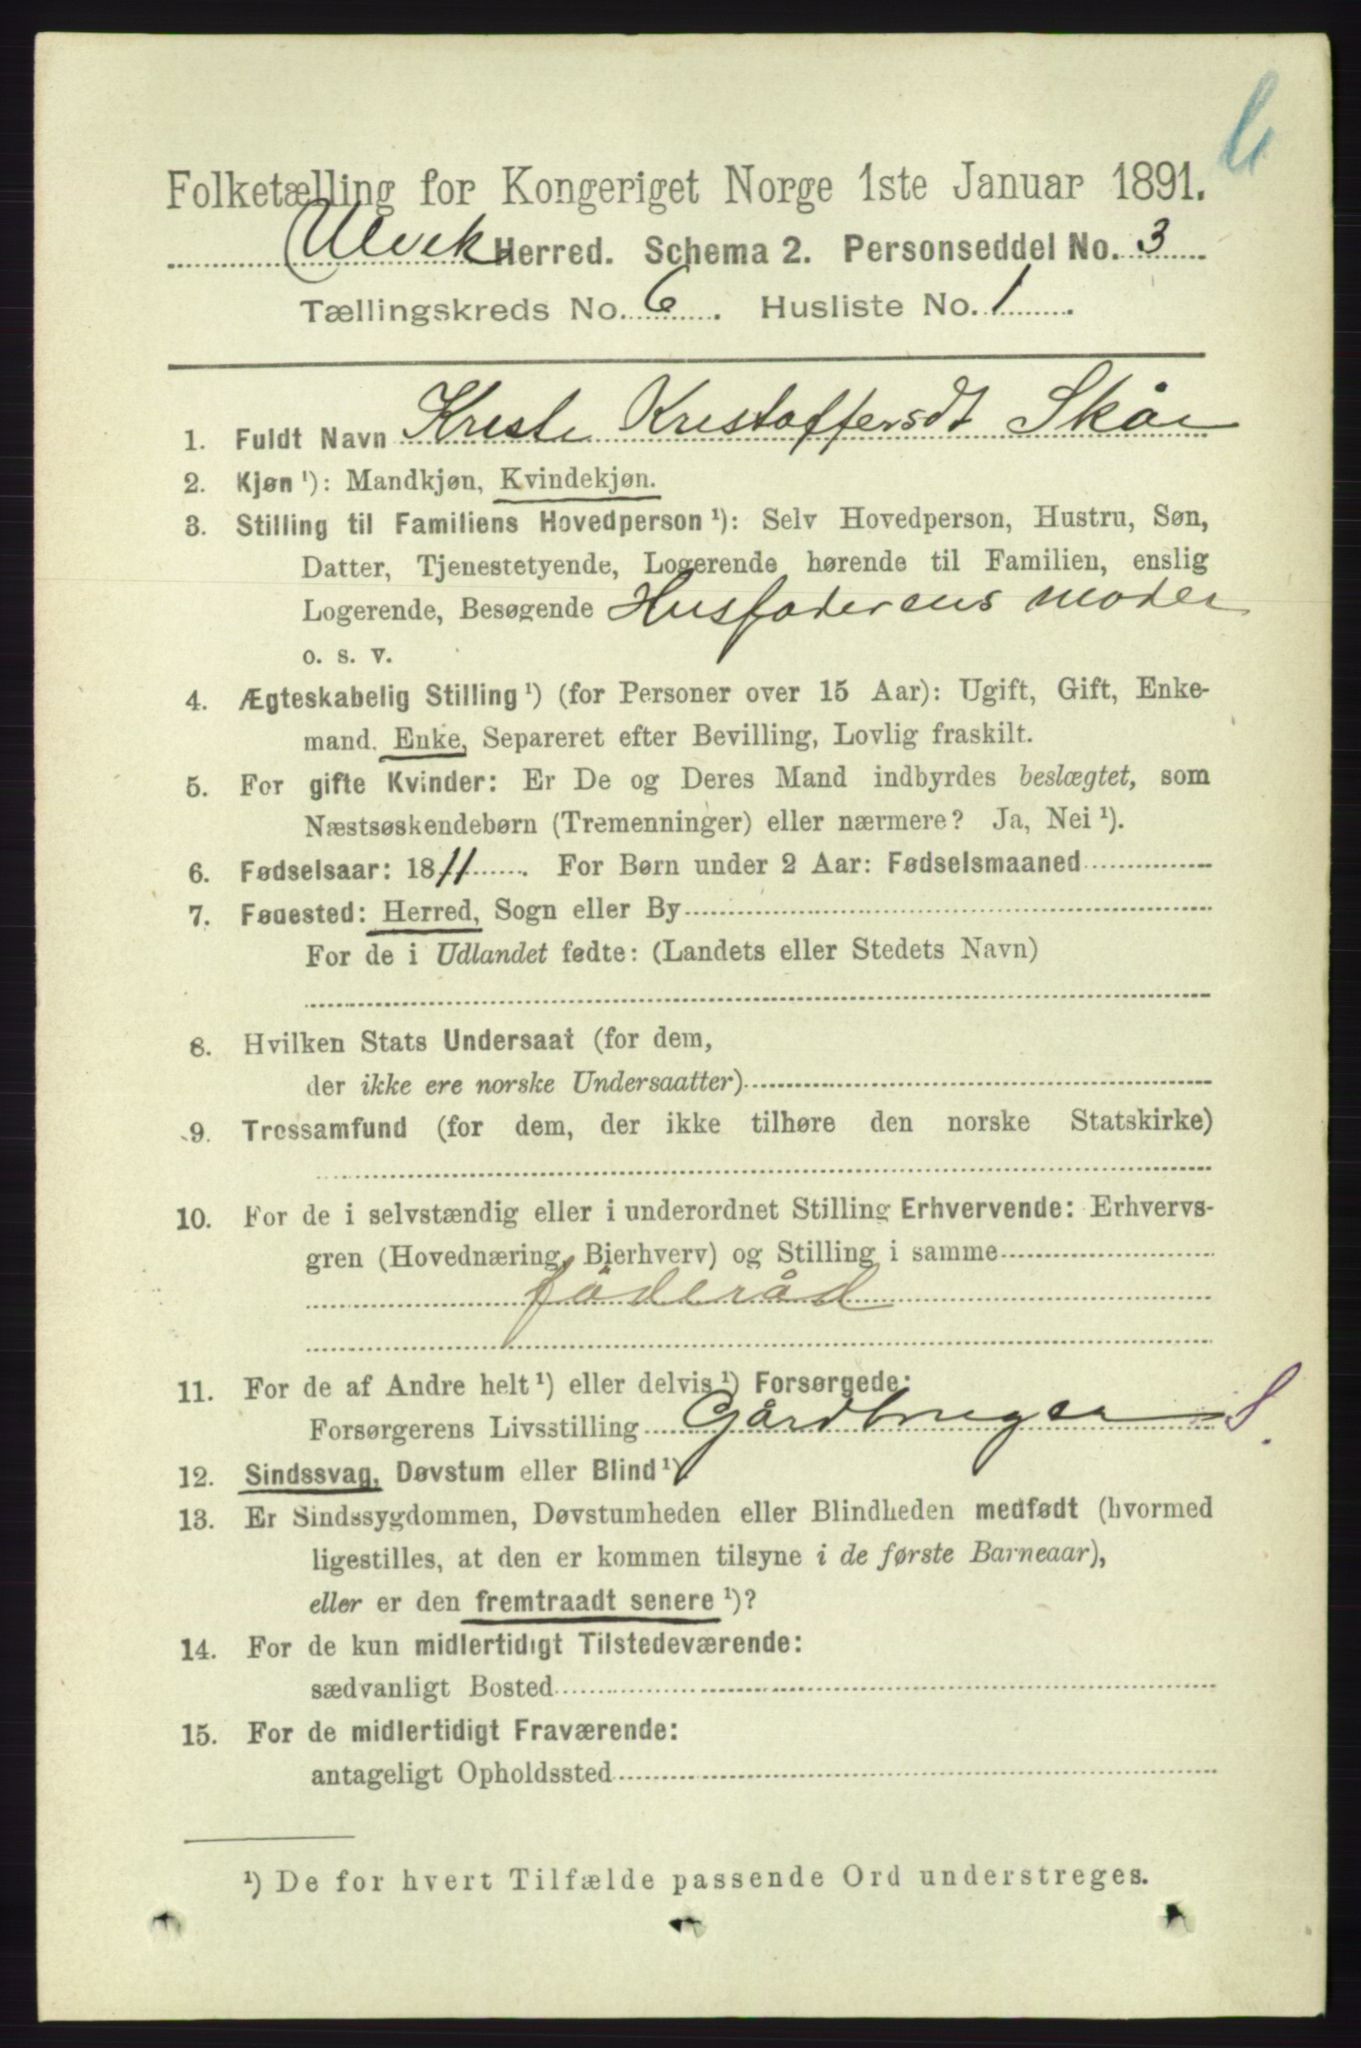 Folketælling for Kongeriget Norge 1ste Januar 1891.
Ulvik Herred. Schema 2. Personseddel No. 3
Tællingskreds No. 6. Husliste No. 1.
1. Fuldt Navn Kriste Kristoffersdt Skår
2. Kjøn ¹): Mandkjøn, Kvindekjøn.
3. Stilling til Familiens Hovedperson ¹): Selv Hovedperson, Hustru, Søn,
Datter, Tjenestetyende, Logerende hørende til Familien, enslig
Logerende, Besøgende Husfaderens moder
o. s. v.
4. Ægteskabelig Stilling ¹) (for Personer over 15 Aar): Ugift, Gift, Enke-
mand, Enke, Separeret efter Bevilling, Lovlig fraskilt.
5. For gifte Kvinder: Er De og Deres Mand indbyrdes beslægtet, som
Næstsøskendebørn (Tremenninger) eller nærmere? Ja, Nei ¹).
6. Fødselsaar: 1811. For Børn under 2 Aar: Fødselsmaaned
7. Fødested: Herred, Sogn eller By
For de i Udlandet fødte: (Landets eller Stedets Navn)
8. Hvilken Stats Undersaat (for dem,
der ikke ere norske Undersaatter)
9. Trossamfund (for dem, der ikke tilhøre den norske Statskirke)
10. For de i selvstændig eller i underordnet Stilling Erhvervende: Erhvervs-
gren (Hovednæring, Bierhverv) og Stilling i samme
föderåd
11. For de af Andre helt ¹) eller delvis ¹) Forsørgede:
Forsørgerens Livsstilling Gårdbruger S.
12. Sindssvag, Døvstum eller Blind ¹)
13. Er Sindssygdommen, Døvstumheden eller Blindheden medfødt (hvormed
ligestilles, at den er kommen tilsyne i de første Barneaar),
eller er den fremtraadt senere ¹)?
14. For de kun midlertidigt Tilstedeværende:
sædvanligt Bosted
15. For de midlertidigt Fraværende:
antageligt Opholdssted
¹) De for hvert Tilfælde passende Ord understreges.